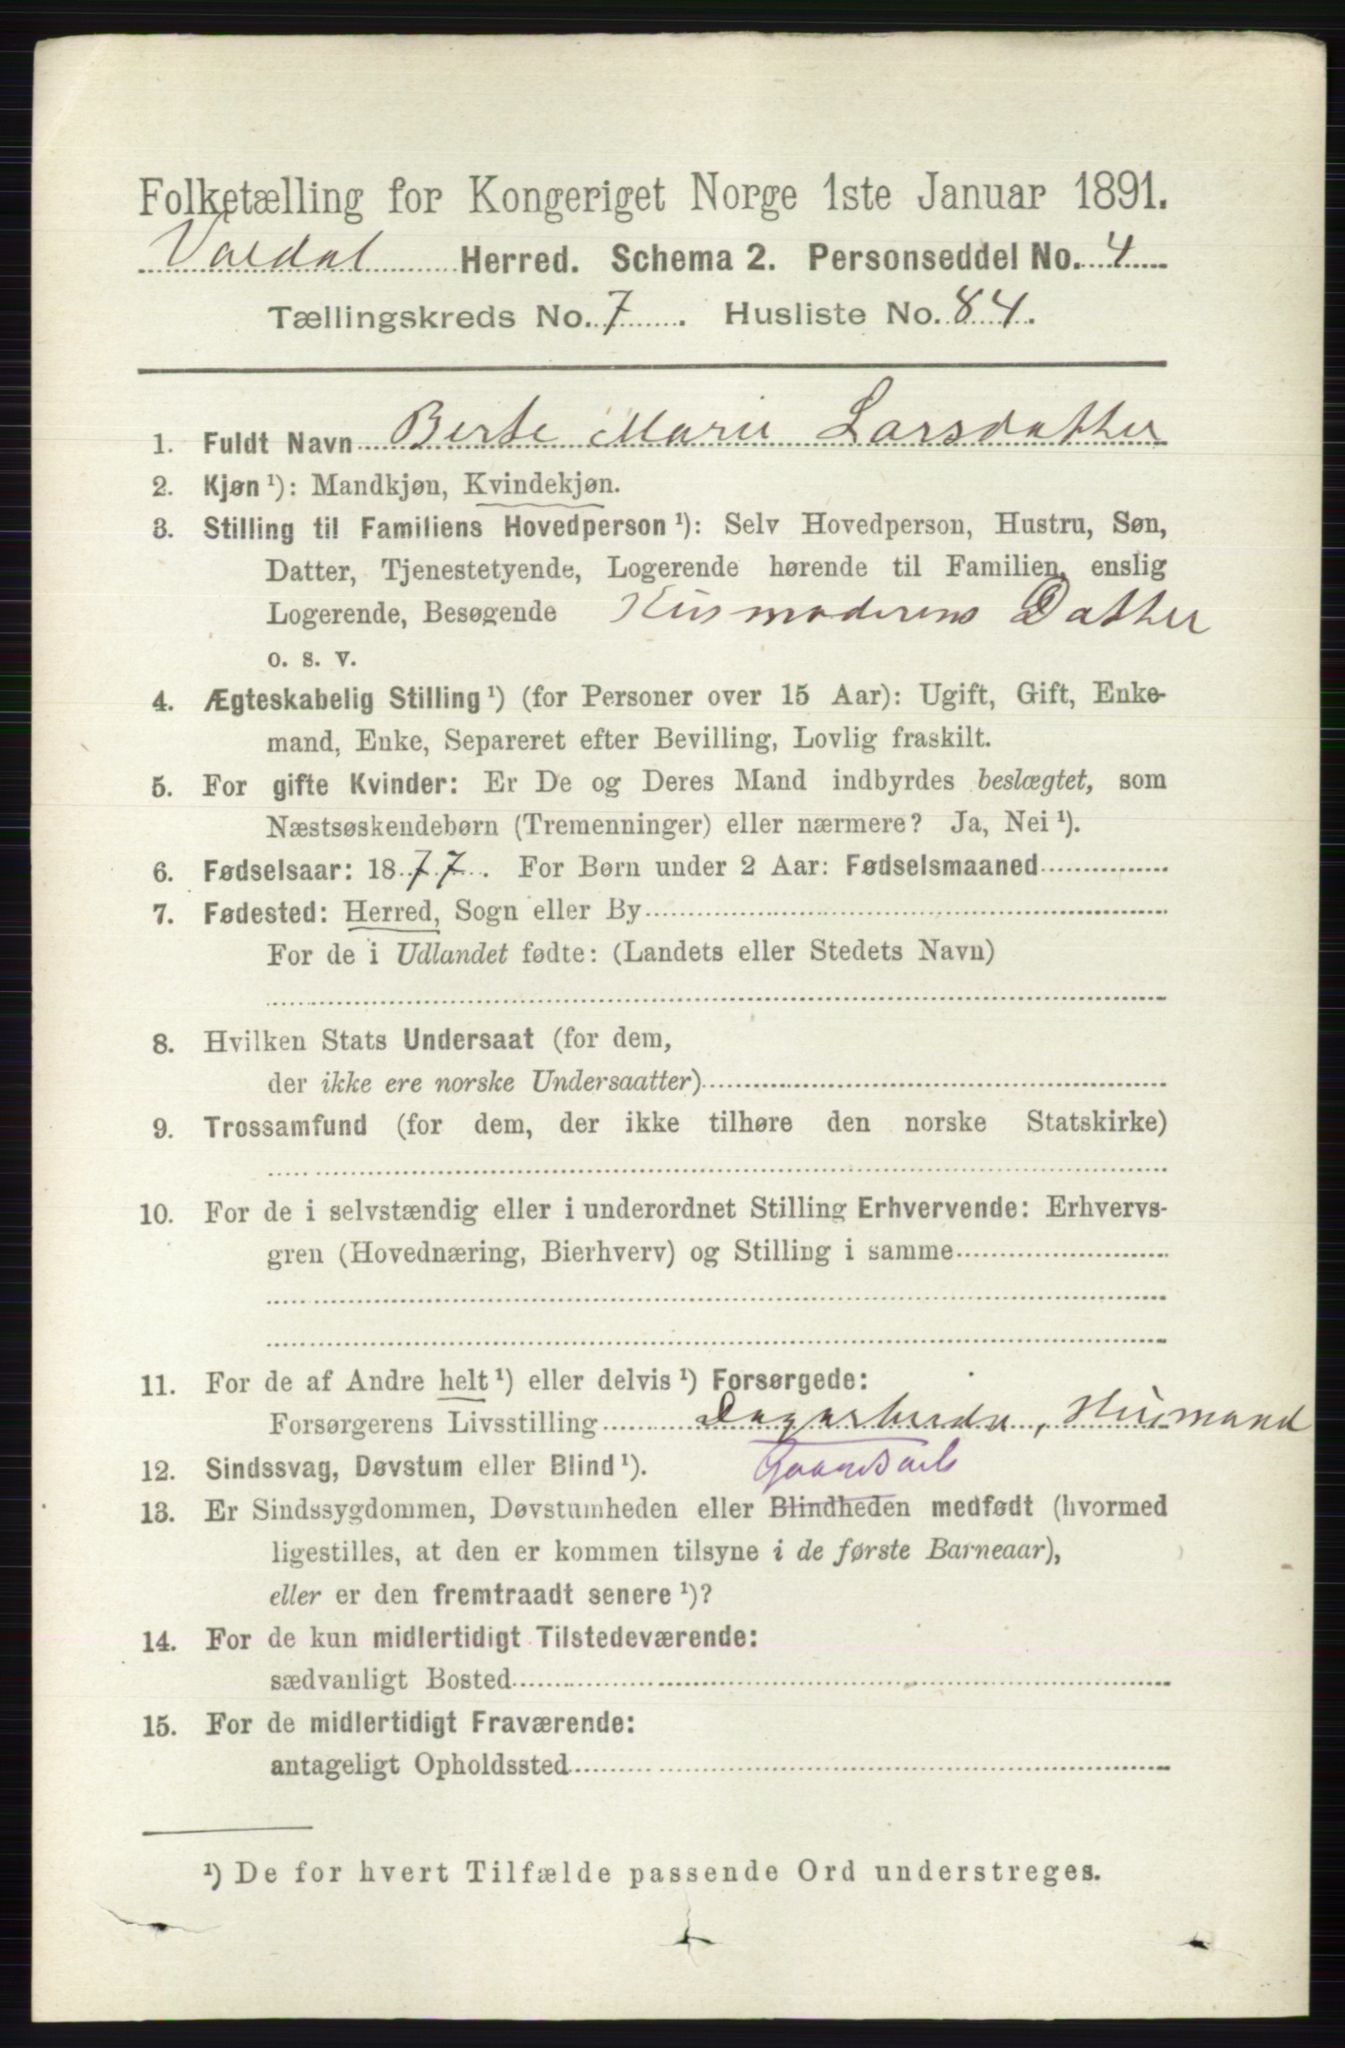 Folketælling for Kongeriget Norge 1ste Januar 1891.
Værdal Herred. Schema 2. Personseddel No. 4
Tællingskreds No. 7. Husliste No. 84.
1. Fuldt Navn Berte Marie Larsdatter
2. Kjøn ¹): Mandkjøn, Kvindekjøn.
3. Stilling til Familiens Hovedperson ¹): Selv Hovedperson, Hustru, Søn,
Datter, Tjenestetyende, Logerende hørende til Familien, enslig
Logerende, Besøgende Husmoderens Datter
o. s. v.
4. Ægteskabelig Stilling ¹) (for Personer over 15 Aar): Ugift, Gift, Enke-
mand, Enke, Separeret efter Bevilling, Lovlig fraskilt.
5. For gifte Kvinder: Er De og Deres Mand indbyrdes beslægtet, som
Næstsøskendebørn (Tremenninger) eller nærmere? Ja, Nei ¹).
6. Fødselsaar: 1877. For Børn under 2 Aar: Fødselsmaaned
7. Fødested: Herred, Sogn eller By
For de i Udlandet fødte: (Landets eller Stedets Navn)
8. Hvilken Stats Undersaat (for dem,
der ikke ere norske Undersaatter)
9. Trossamfund (for dem, der ikke tilhøre den norske Statskirke)
10. For de i selvstændig eller i underordnet Stilling Erhvervende: Erhvervs-
gren (Hovednæring, Bierhverv) og Stilling i samme
11. For de af Andre helt ¹) eller delvis ¹) Forsørgede:
Forsørgerens Livsstilling Dagarbeider, Husmand
12. Sindssvag, Døvstum eller Blind ¹). Gaardsarb
13. Er Sindssygdommen, Døvstumheden eller Blindheden medfødt (hvormed
ligestilles, at den er kommen tilsyne i de første Barneaar),
eller er den fremtraadt senere ¹)?
14. For de kun midlertidigt Tilstedeværende:
sædvanligt Bosted
15. For de midlertidigt Fraværende:
antageligt Opholdssted
¹) De for hvert Tilfælde passende Ord understreges.